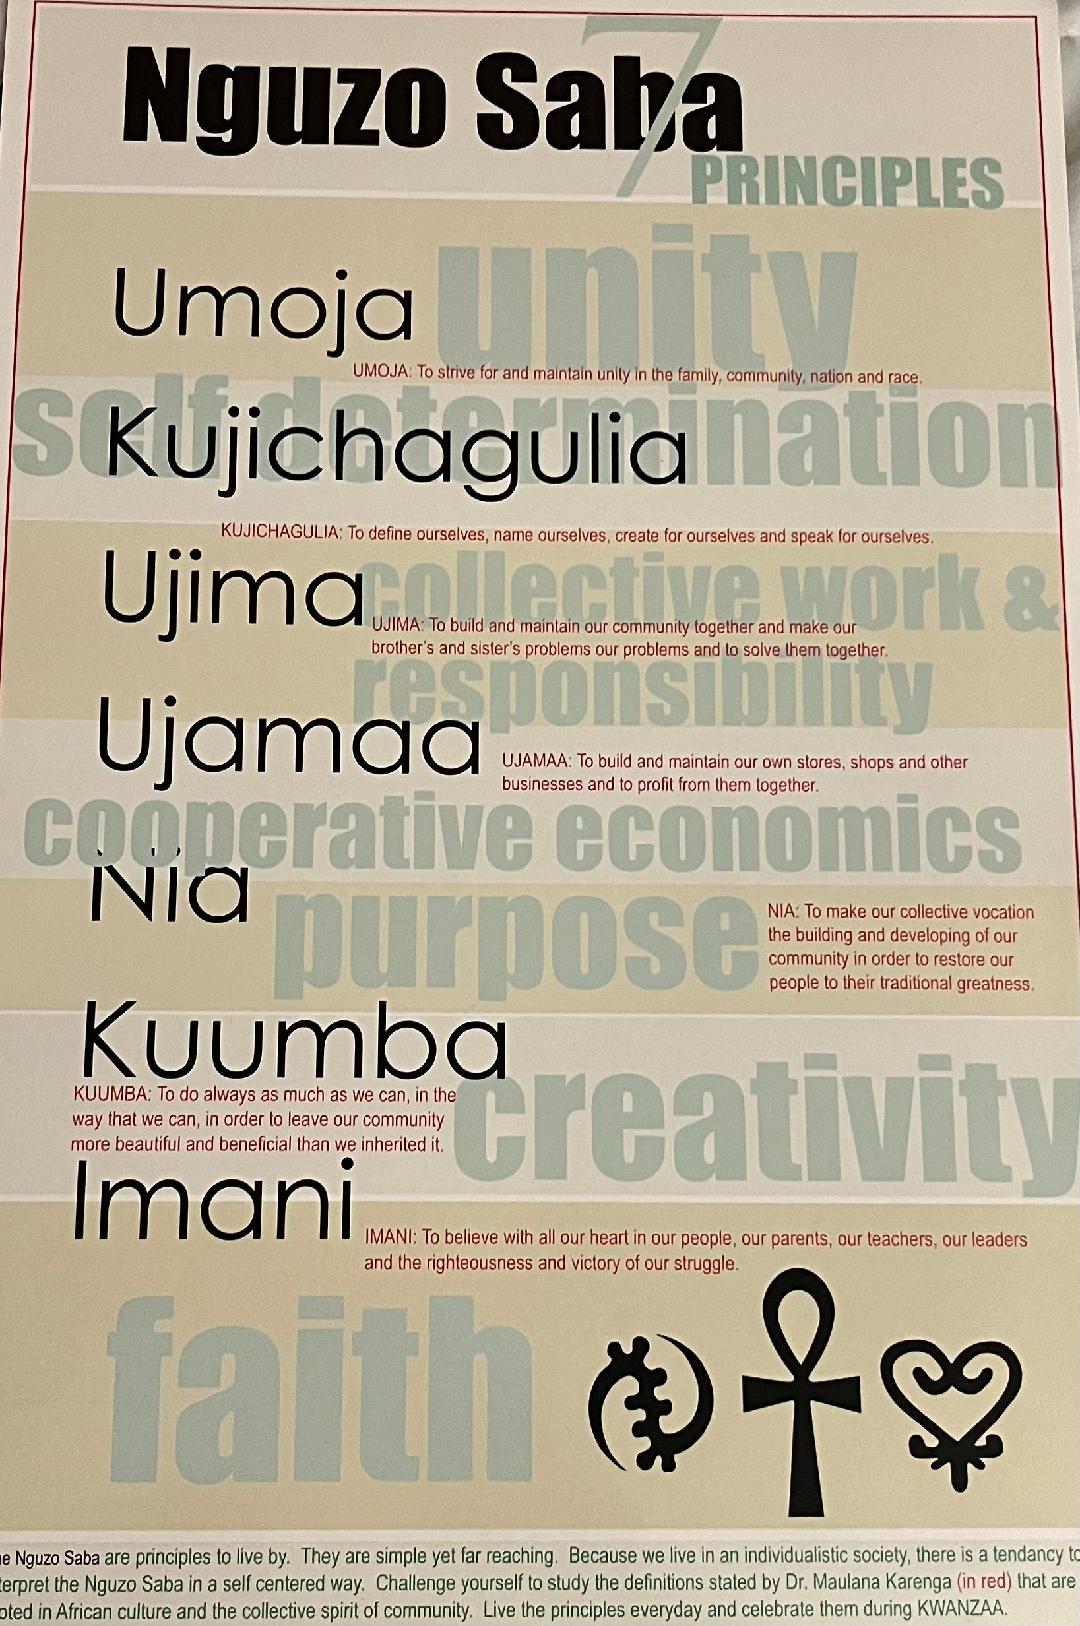 Nguzo Saba
7
PRINCIPLES
Umoja
unity
UMOJA: To strive for and maintain unity in the family, community, nation and race.
self determination
Kujichagulia
KUJICHAGULIA: To define ourselves, name ourselves, create for ourselves and speak for ourselves.
Ujima
collective work &
UJIMA: To build and maintain our community together and make our
brother's and sister's problems our problems and to solve them together.
responsibility
Ujamaa
UJAMAA: To build and maintain our own stores, shops and other
businesses and to profit from them together.
cooperative economics
Nia
purpose
NIA: To make our collective vocation
the building and developing of our
community in order to restore our
people to their traditional greatness.
Kuumba
KUUMBA: To do always as much as we can, in the
way that we can, in order to leave our community
more beautiful and beneficial than we inherited it.
creativity
Imani
IMANI: To believe with all our heart in our people, our parents, our teachers, our leaders
and the righteousness and victory of our struggle.
faith
Nguzo Saba are principles to live by. They are simple yet far reaching. Because we live in an individualistic society, there is a tendancy to
terpret the Nguzo Saba in a self centered way. Challenge yourself to study the definitions stated by Dr. Maulana Karenga (in red) that are
oted in African culture and the collective spirit of community. Live the principles everyday and celebrate them during KWANZAA.